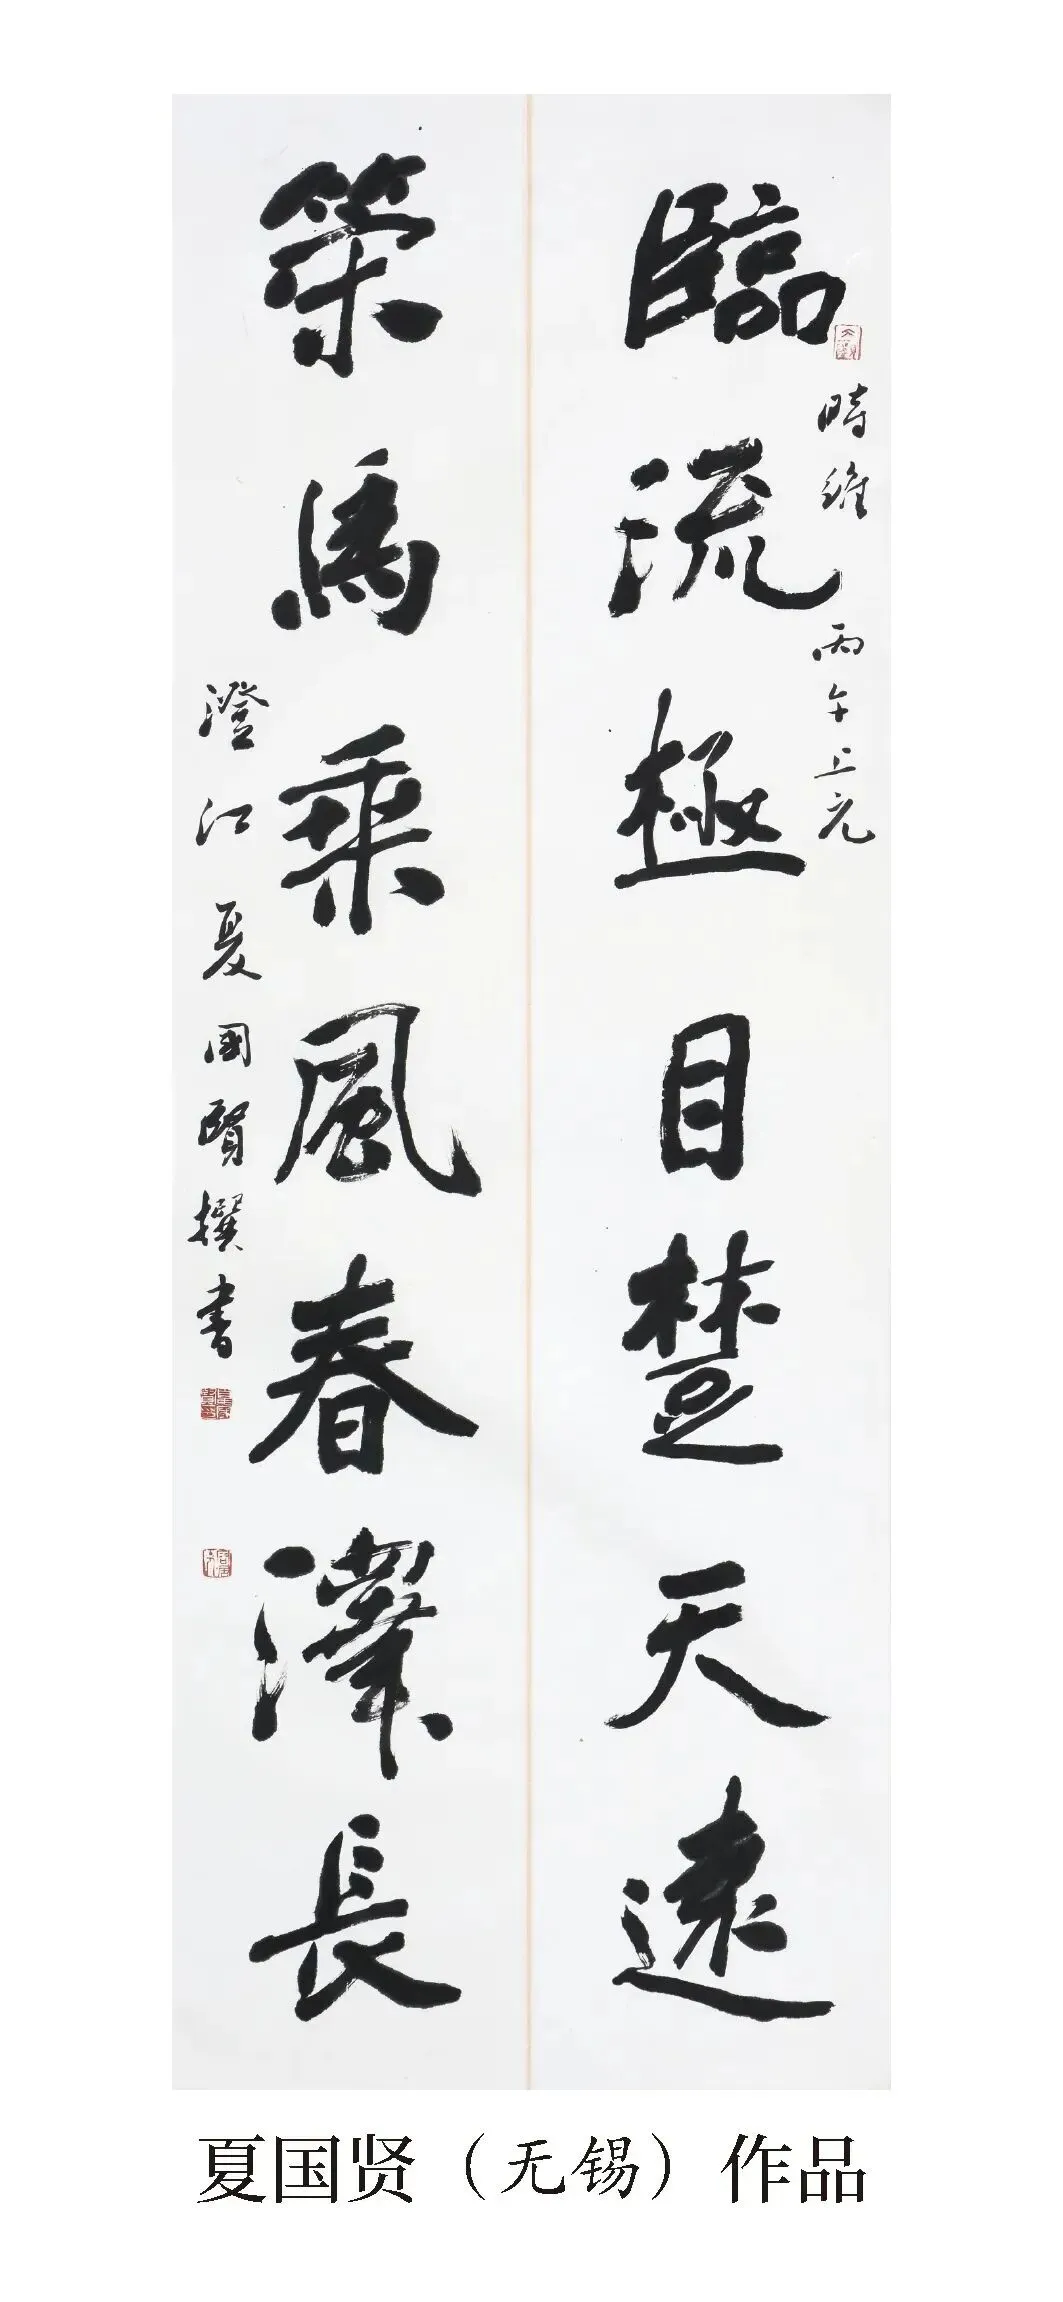 臨流極目楚天遠
時維丙午上元
策馬乘風春澤長
澄江夏國賢撰書
夏国贤（无锡）作品